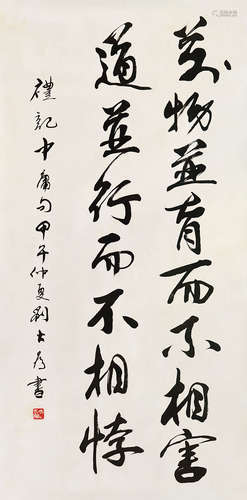 萬物並育而不相害
道並行而不相悖
禮記中庸句甲午仲夏劉大為書